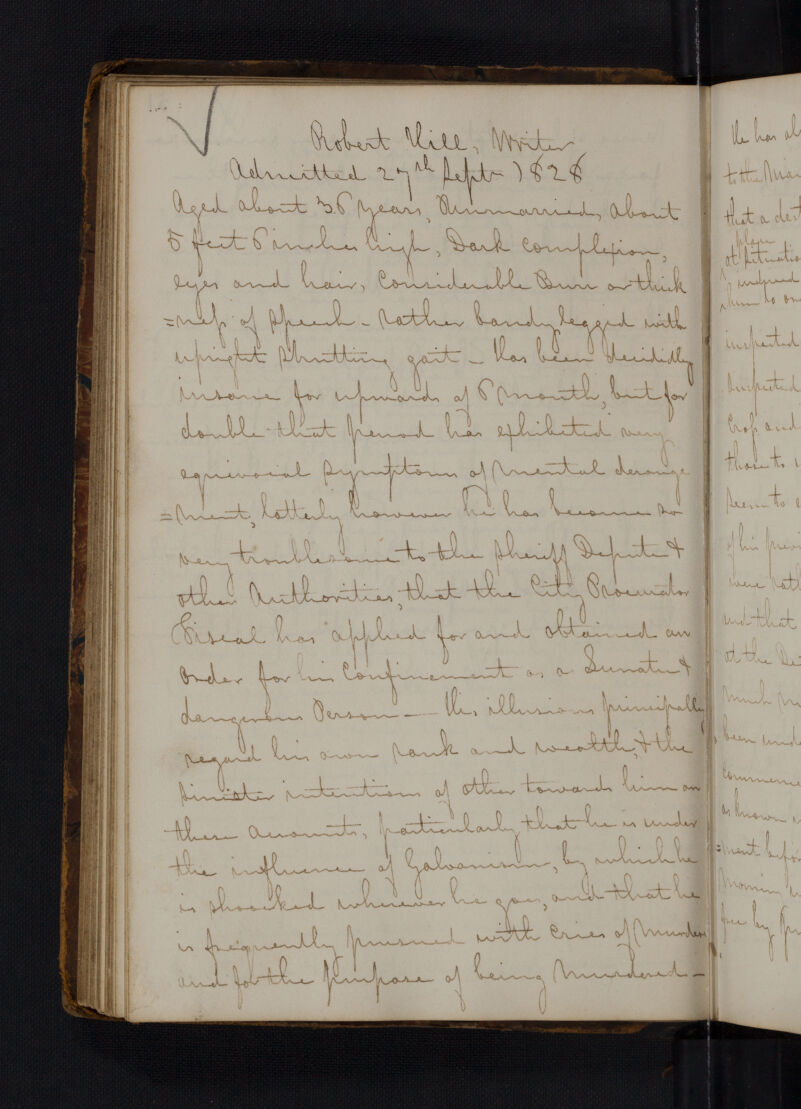 Robert Hill, Writer
Admitted 27th Septr 1828
Aged about 36 years, Unmarried, about
5 feet 6 inches high, Dark complexion,
eyes and hair, Considerable Burr or thick
=ness of speech - rather bandy legged with
upright strutting gait - Has been decidedly
insane for upwards of 6 month, but for
double that period has exhibited very
equivocial symptoms of mental derange
=ment, latterly however he has become so
very troublesome to the Sheriff Depute &
other Authorities, that the City Procurator
Fiscal has applied for and obtained an
order for his Confinement as a Lunatic &
dangerous Person — His illusions principally
regard his own rank and wealth, & the
sinister intentions of other towards him on
these accounts, particularly that he is under
the influence of Galvanism, by which he
is shocked wherever he goes, and that he
is frequently pursued with cries of Murder
and for the purpose of being Murdered -
He has
to the
that a
at situatio
him to
inspected
Crop and
those to
seem to
of his
were
and that
at the
much
been
commence
as known
=ment befo
morning